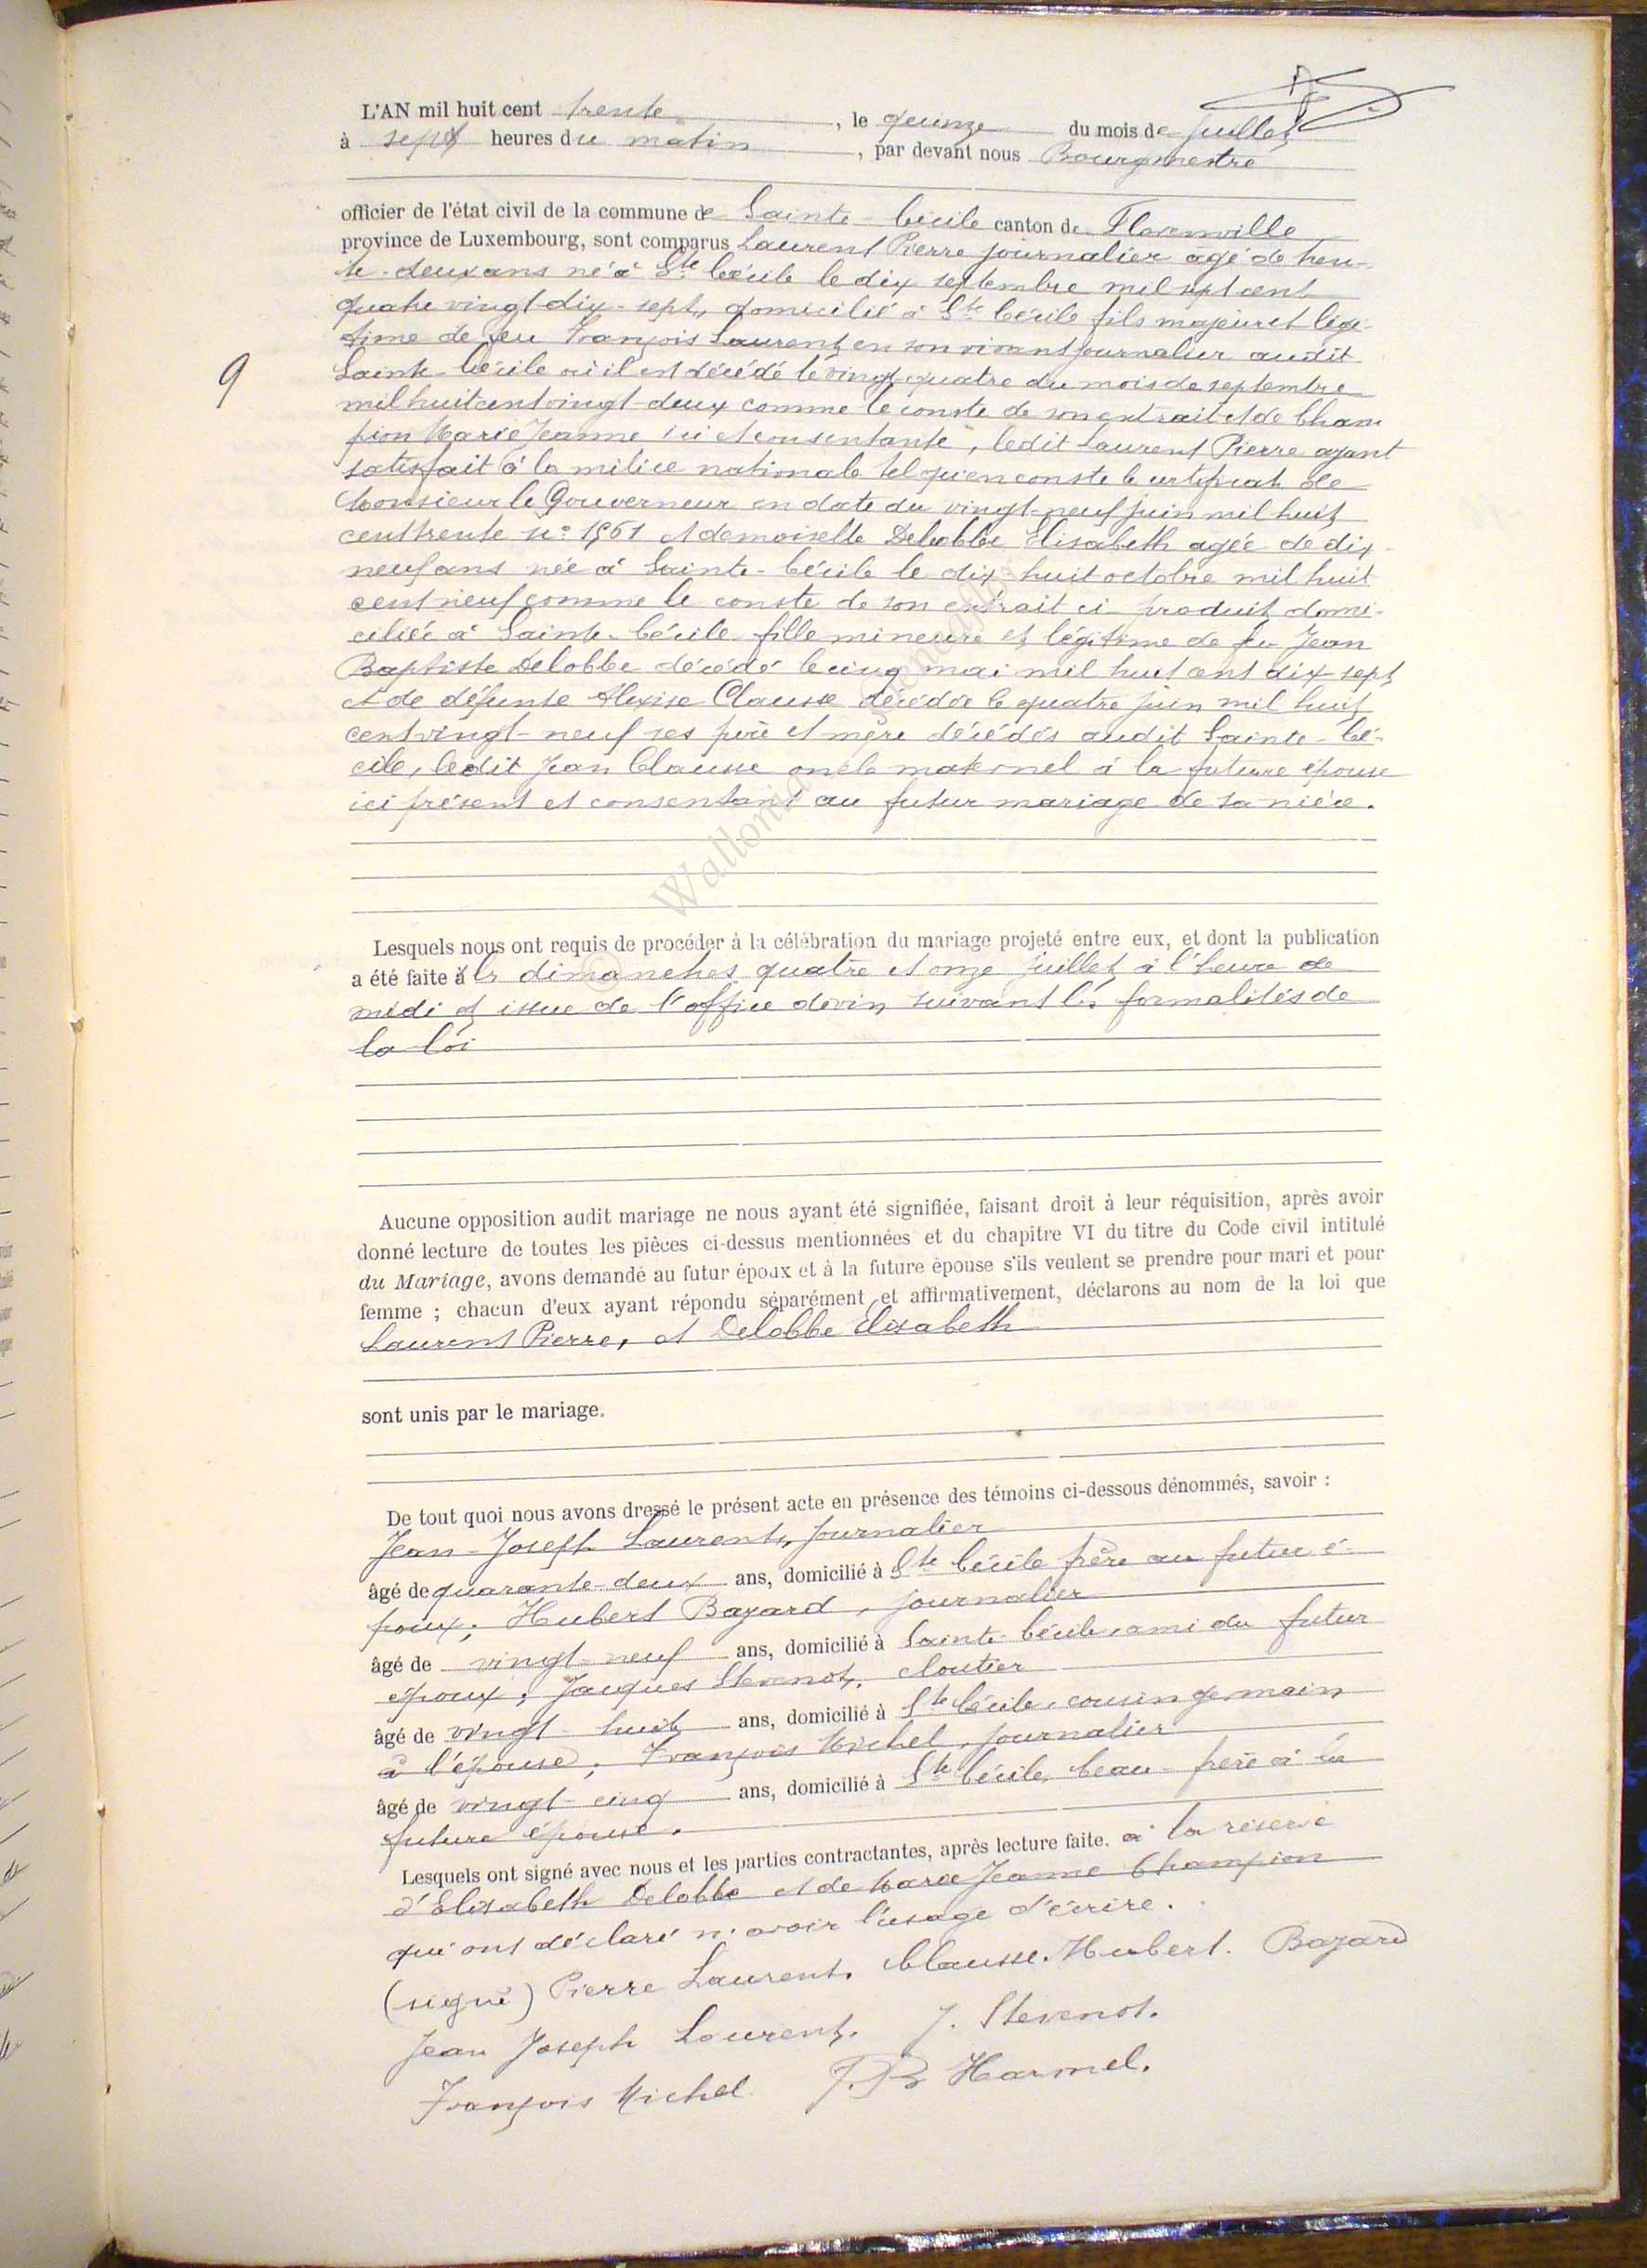 L'AN mil huit cent trente, le quinze du mois de juillet
à sept heures du matin, par devant nous Bourgmestre
officier de l'état civil de la commune de Sainte-Cécile canton de Florenville
province de Luxembourg, sont comparus Laurent Pierre journalier agé de tren-
te-deux ans né à Ste Cécile le dix septembre mil sept cent
quatre vingt-dix-sept, domicilié à Ste Cécile fils majeur et légi-
time de feu François Laurent en son vivant journalier audit
9
Sainte-Cécile où il est décédé le vingt-quatre du mois de septembre
mil huit cent vingt-deux comme le conste de son extrait et de Cham
pion Marie Jeanne ici et consentante, ledit Laurent Pierre ayant
satisfait à la milice nationale tel qu'en conste le certificat de
Monsieur le Gouverneur en date du vingt-neuf juin mil huit
cent trente n° 1961 et demoiselle Delobbe Elisabeth agée de dix-
neuf ans née à Sainte-Cécile le dix-huit octobre mil huit
cent neuf comme le conste de son extrait ci produit domi-
ciliée à Sainte-Cécile fille mineure et légitime de feu Jean
Baptiste Delobbe décédé le cinq mai mil huit cent dix-sept
et de défunte Alexise Clausse décédée le quatre juin mil huit
cent vingt-neuf ses père et mère décédés audit Sainte-Cé-
cile, ledit Jean Clausse oncle maternel à la future épouse
ici présent et consentant au futur mariage de sa nièce.
© Wallonia
Lesquels nous ont requis de procéder à la célébration du mariage projeté entre eux, et dont la publication
a été faite à les dimanches quatre et onze juillet à l'heure de
midi et issue de l'office devin suivant les formalités de
la loi
Aucune opposition audit mariage ne nous ayant été signifiée, faisant droit à leur réquisition, après avoir
donné lecture de toutes les pièces ci-dessus mentionnées et du chapitre VI du titre du Code civil intitulé
du Mariage, avons demandé au futur époux et à la future épouse s'ils veulent se prendre pour mari et pour
femme ; chacun d'eux ayant répondu séparément et affirmativement, déclarons au nom de la loi que
Laurent Pierre, et Delobbe Elisabeth
sont unis par le mariage.
De tout quoi nous avons dressé le présent acte en présence des témoins ci-dessous dénommés, savoir :
Jean-Joseph Laurent, journalier
âgé de quarante-deux ans, domicilié à Ste Cécile frère au futur é-
poux; Hubert Bazard, journalier
âgé de vingt-neuf ans, domicilié à Sainte-Cécile, ami du futur
époux; Jacques Stevenot, cloutier
âgé de vingt-huit ans, domicilié à Ste Cécile, cousin germain
à l'épouse; François Michel, journalier
âgé de vingt-cinq ans, domicilié à Ste Cécile, beau-frère à la
future épouse.
Lesquels ont signé avec nous et les parties contractantes, après lecture faite. à la réserve
d'Elisabeth Delobbe et de Marie Jeanne Champion
qui ont déclaré n'avoir l'usage d'écrire.
(signé) Pierre Laurent. Clausse. Hubert. Bazard
Jean Joseph Laurent. J. Stevenot.
François Michel J.B Harmel.